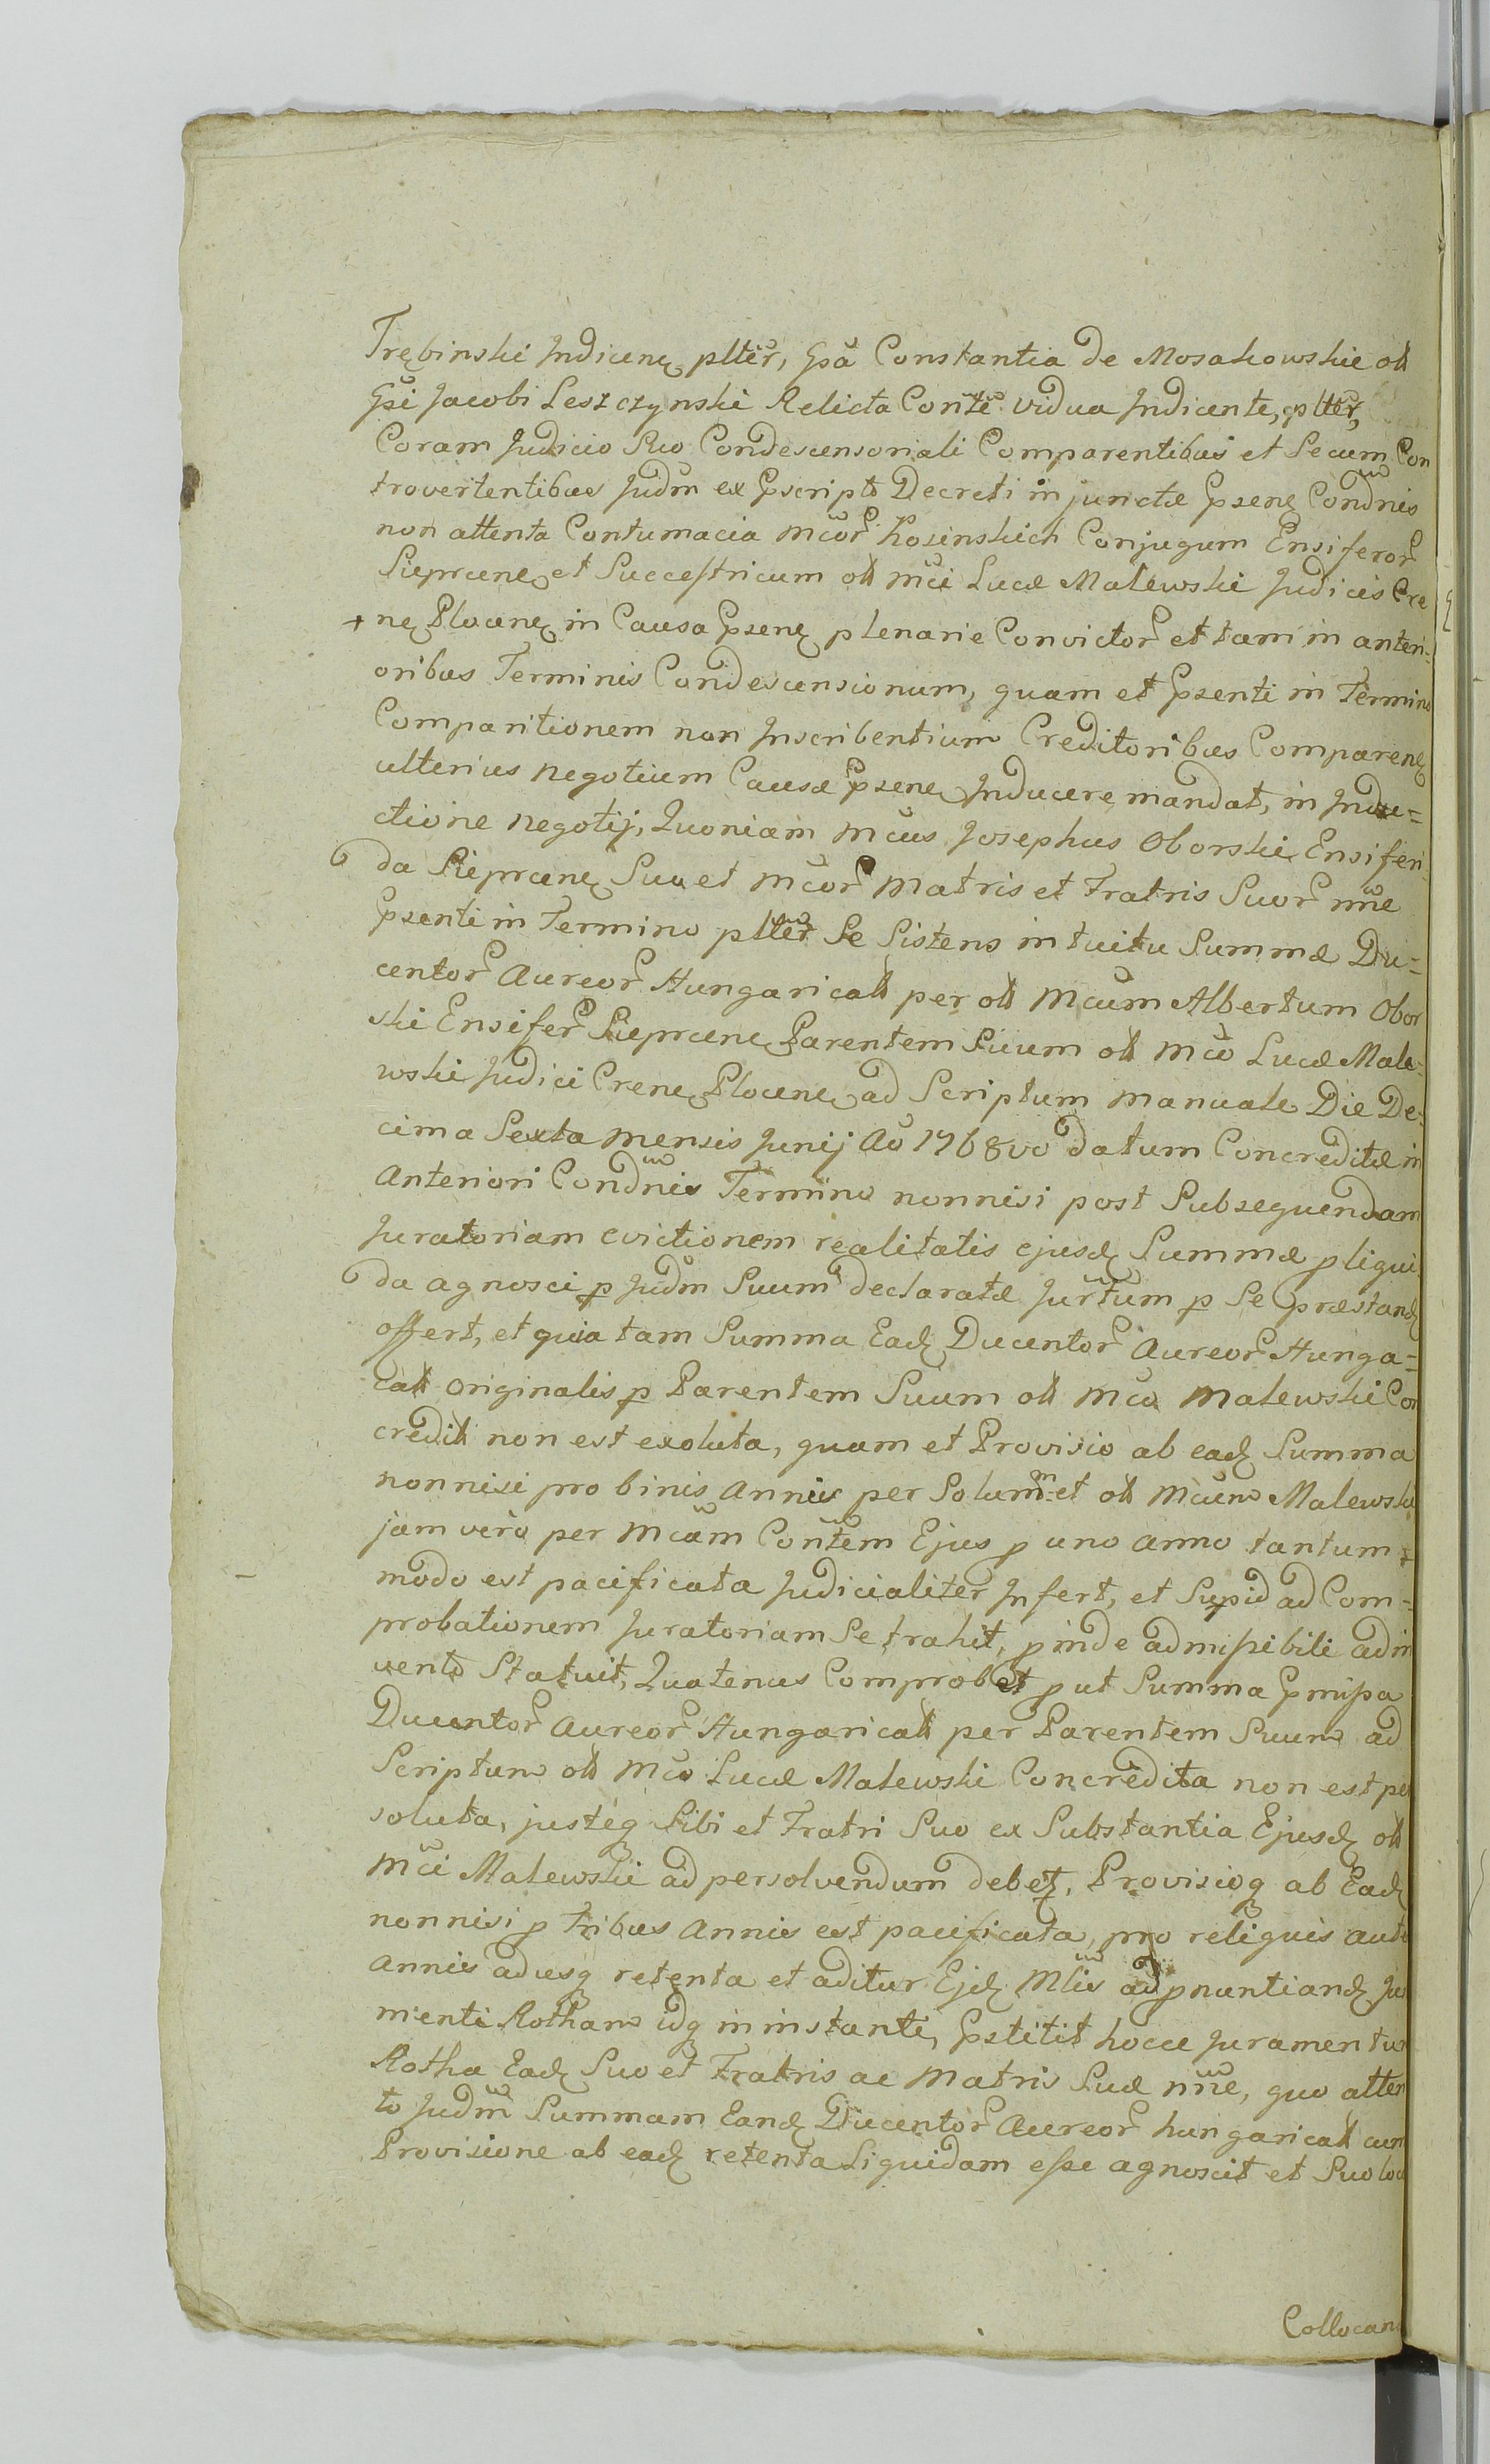 Trębinski Judicenę plter, Gsa Constantia de Mosakowskie olł
Gsi Jacobi Leszczynski Relicta Conte vidua Judicente, plter,
Coram Judicio Suo Condescensoriali Comparentibus et Secum Con
trovertentibus Judm ex Pscripto Decreti injunctæ Psenę Condnis
non attenta Contumacia mcor Kosinskich Conjugum Ensiferor
Sieprcenę et Successtricum olł mci Lucæ Malewski Judicis Cre
nę Plocenę in Causa Psenę plenarie Convictor et tam in anteri=
oribus Terminis Condescensionum, quam et Psenti in Termino
Comparitionem non Inscribentium Creditoribus Comparenę
ulterius negotium Causæ Psenę Inducere mandat, in Indu=
ctione negotij, Quoniam mcus Josephus Oborski Ensiferi
da Sieprcenę Suo et mcor matris et Fratris Suor nne
Psenti in Termino plter Se Sistens intuitu Summæ Du=
centor Aureor Hungaricalł per olł mcum Albertum Obor
ski Ensifer Sieprcenę Parentem Suum olł mco Lucæ Male=
wski Judici Crenę Plocenę ad Scriptum manuale Die De=
cima Sexta mensis Junij Ao 1768vo datum Concreditæ in
Anteriori Condnis Termino nonnisi post Subsequendam
Juratoriam evictionem realitatis ejusdę Summæ p liqui
da agnosci p Judm Suum declaratæ Jurtum p Se præstandę
offert, et quia tam Summa Eadę Ducentor Aureor Hunga=
calł originalis p Parentem Suum olł mco Malewski Con
crediti non est exoluta, quam et Provisio ab eadę Summa
nonnisi pro binis Annis per Solummet olł mcum Malewski
jam vero per mcam Contem Ejus p uno anno tantum=
modo est pacificata Judicialiter Infert, et Supid ad Com=
probationem Juratoriam Se trahit, p inde admissibili adin
vento Statuit, Quatenus Comprobet p ut Summa Pmissa
Ducentor Aureor Hungaricalł per Parentem Suum ad
Scriptum olł mco Lucæ Malewski Concredita non est per
soluta, justeq Sibi et Fratri Suo ex Substantia Ejusdę olł
mci Malewski ad persolvendum debet, Provisioq ab Eadę
nonnisi p tribus Annis est pacificata, pro reliquis aute
annis adusq retenta et aditur Ejdę Mlis ad pnuntiandę Ju
menti Rotham idq in instanti, Pstitit hocce Juramentum
Rotha Eadę Suo et Fratris ac Matris Suæ nne, quo atten
to Judm Summam Eandę Ducentor Aureor hungaricalł cum
Provisione ab eadę retenta Liquidam esse agnoscit et Suo loco
Collocan